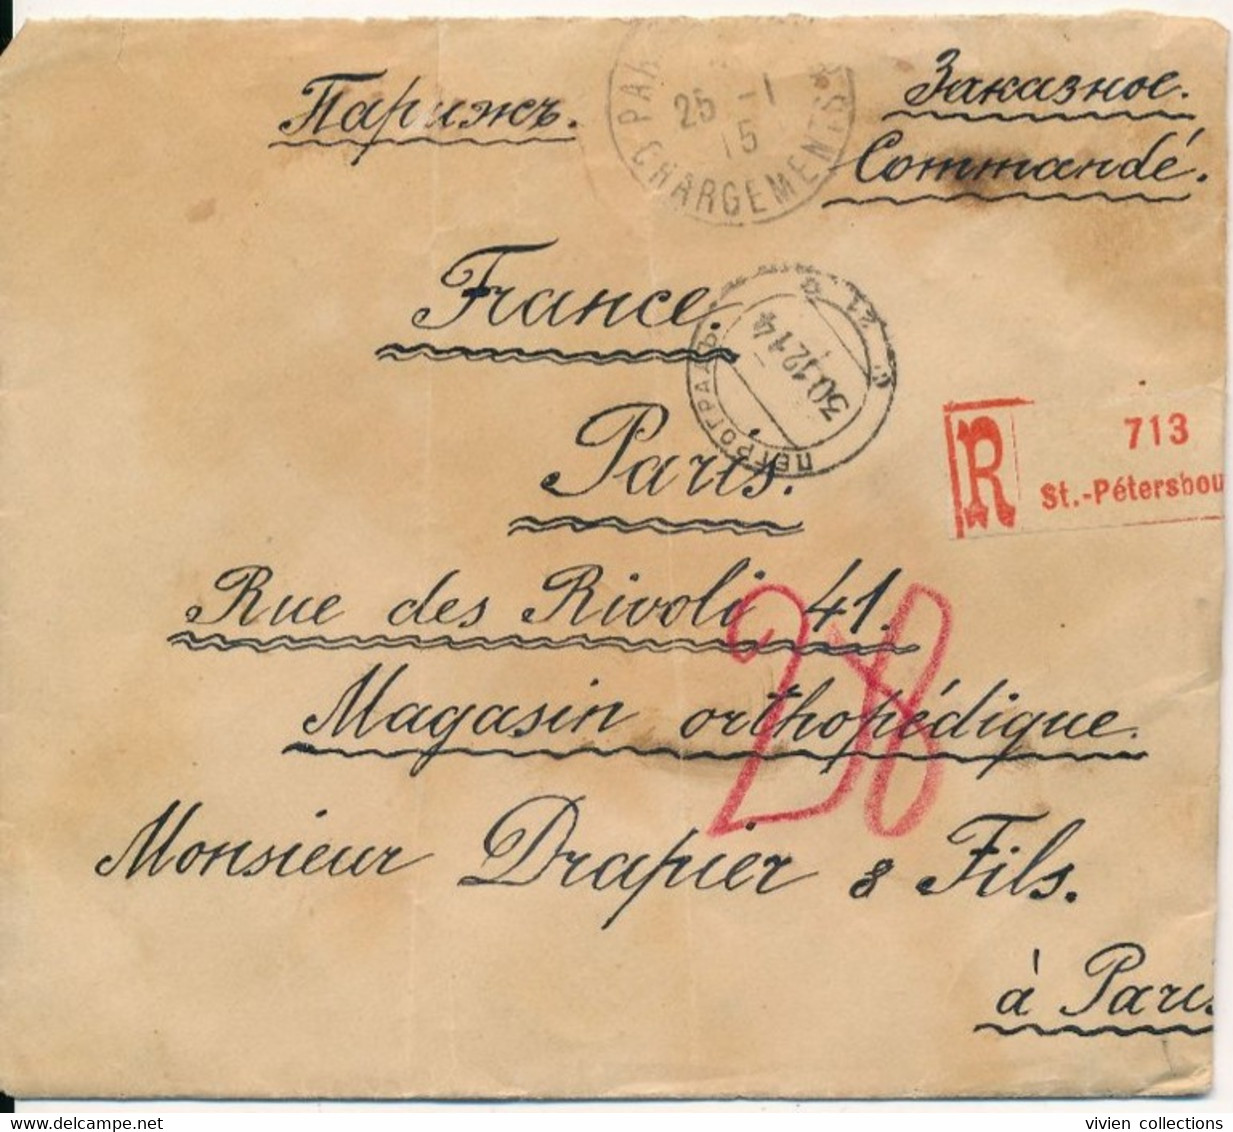 Парижъ.
Заказное.
Commandé.
25 -1
15
CHARGEMENTS
France.
ПЕТРОГРАДЪ
30.12.14
21
Paris.
R
713
St.-Pétersbou
Rue des Rivoli 41.
Magasin orthopédique.
Monsieur Drapier & Fils.
à Paris
delcampe.net
vivien collections